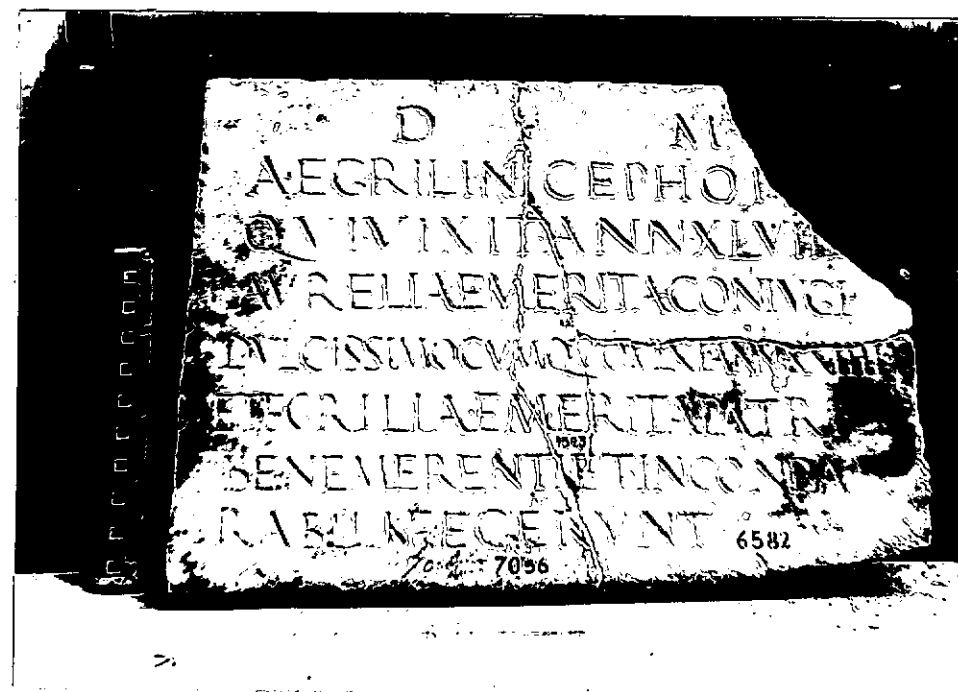 D M
A EGRILI NICEPHOR
QVI VIXIT ANN XLVII
AVRELIA EMERITA CONIVGI
DVLCISSIMO CVM
ET EGRILIA EMERITA PATRI
BENEMERENTI ET INCONPA
RABILI FECERVNT
1523
7056
6582